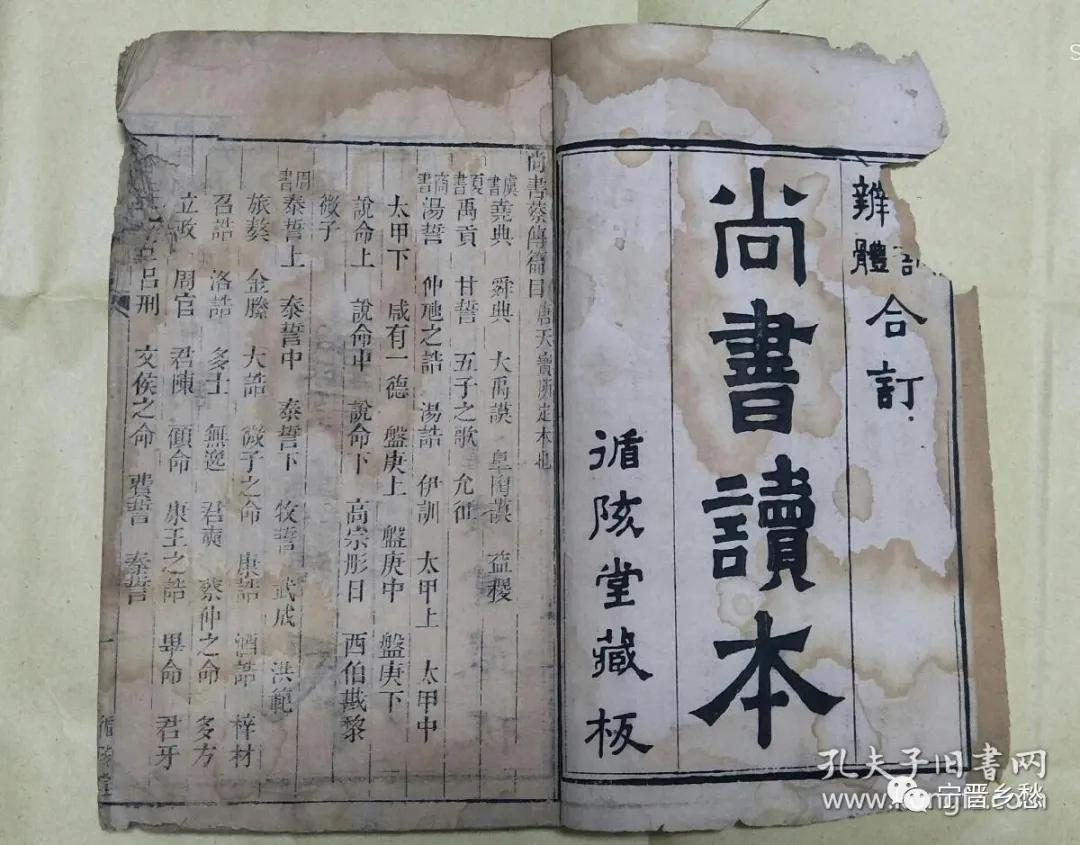 辨體
合訂
尚書讀本
循陔堂藏板
尚書蔡傳篇目 唐天寶所定本也
虞書 堯典 舜典 大禹謨 皋陶謨 益稷
夏書 禹貢 甘誓 五子之歌 允征
商書 湯誓 仲虺之誥 湯誥 伊訓 太甲上 太甲中
太甲下 咸有一德 盤庚上 盤庚中 盤庚下
說命上 說命中 說命下 高宗肜日 西伯戡黎
微子
周書 泰誓上 泰誓中 泰誓下 牧誓 武成 洪範
旅獒 金縢 大誥 微子之命 康誥 酒誥 梓材
召誥 洛誥 多士 無逸 君奭 蔡仲之命 多方
立政 周官 君陳 顧命 康王之誥 畢命 君牙
呂刑 文侯之命 費誓 秦誓
一
孔夫子旧书网
宁晋乡愁